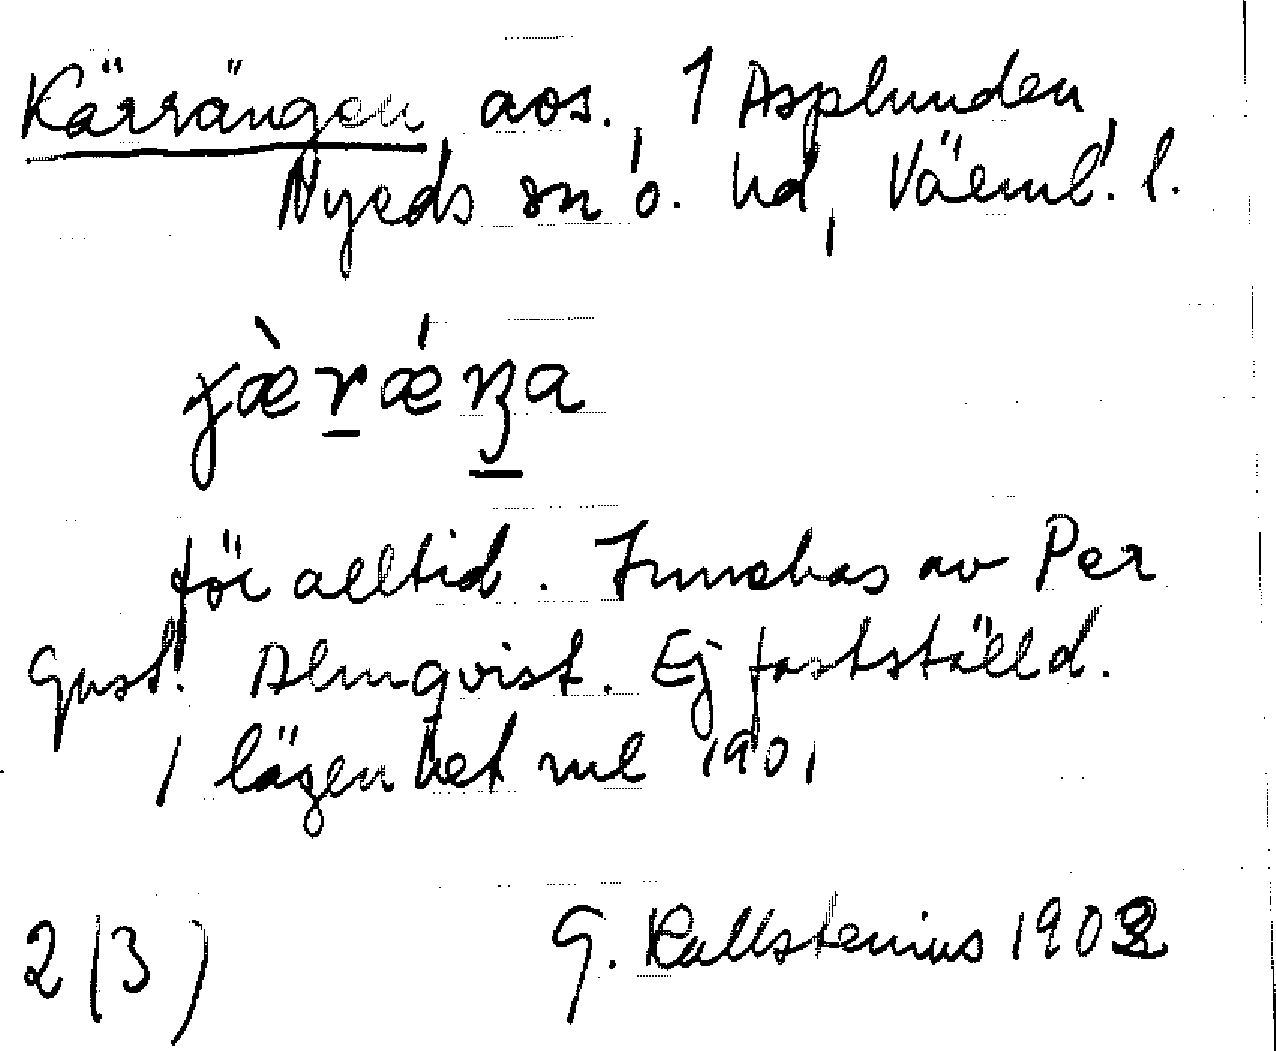 Kärrängen, aos., 1 Asplunden,
Nyeds sn, ö. hd, Värml. l.
för alltid. Innehas av Per
Gust. Almqvist. Ej fastställd.
1 lägenhet nul 1901
2(3) G. Kallstenius 1902